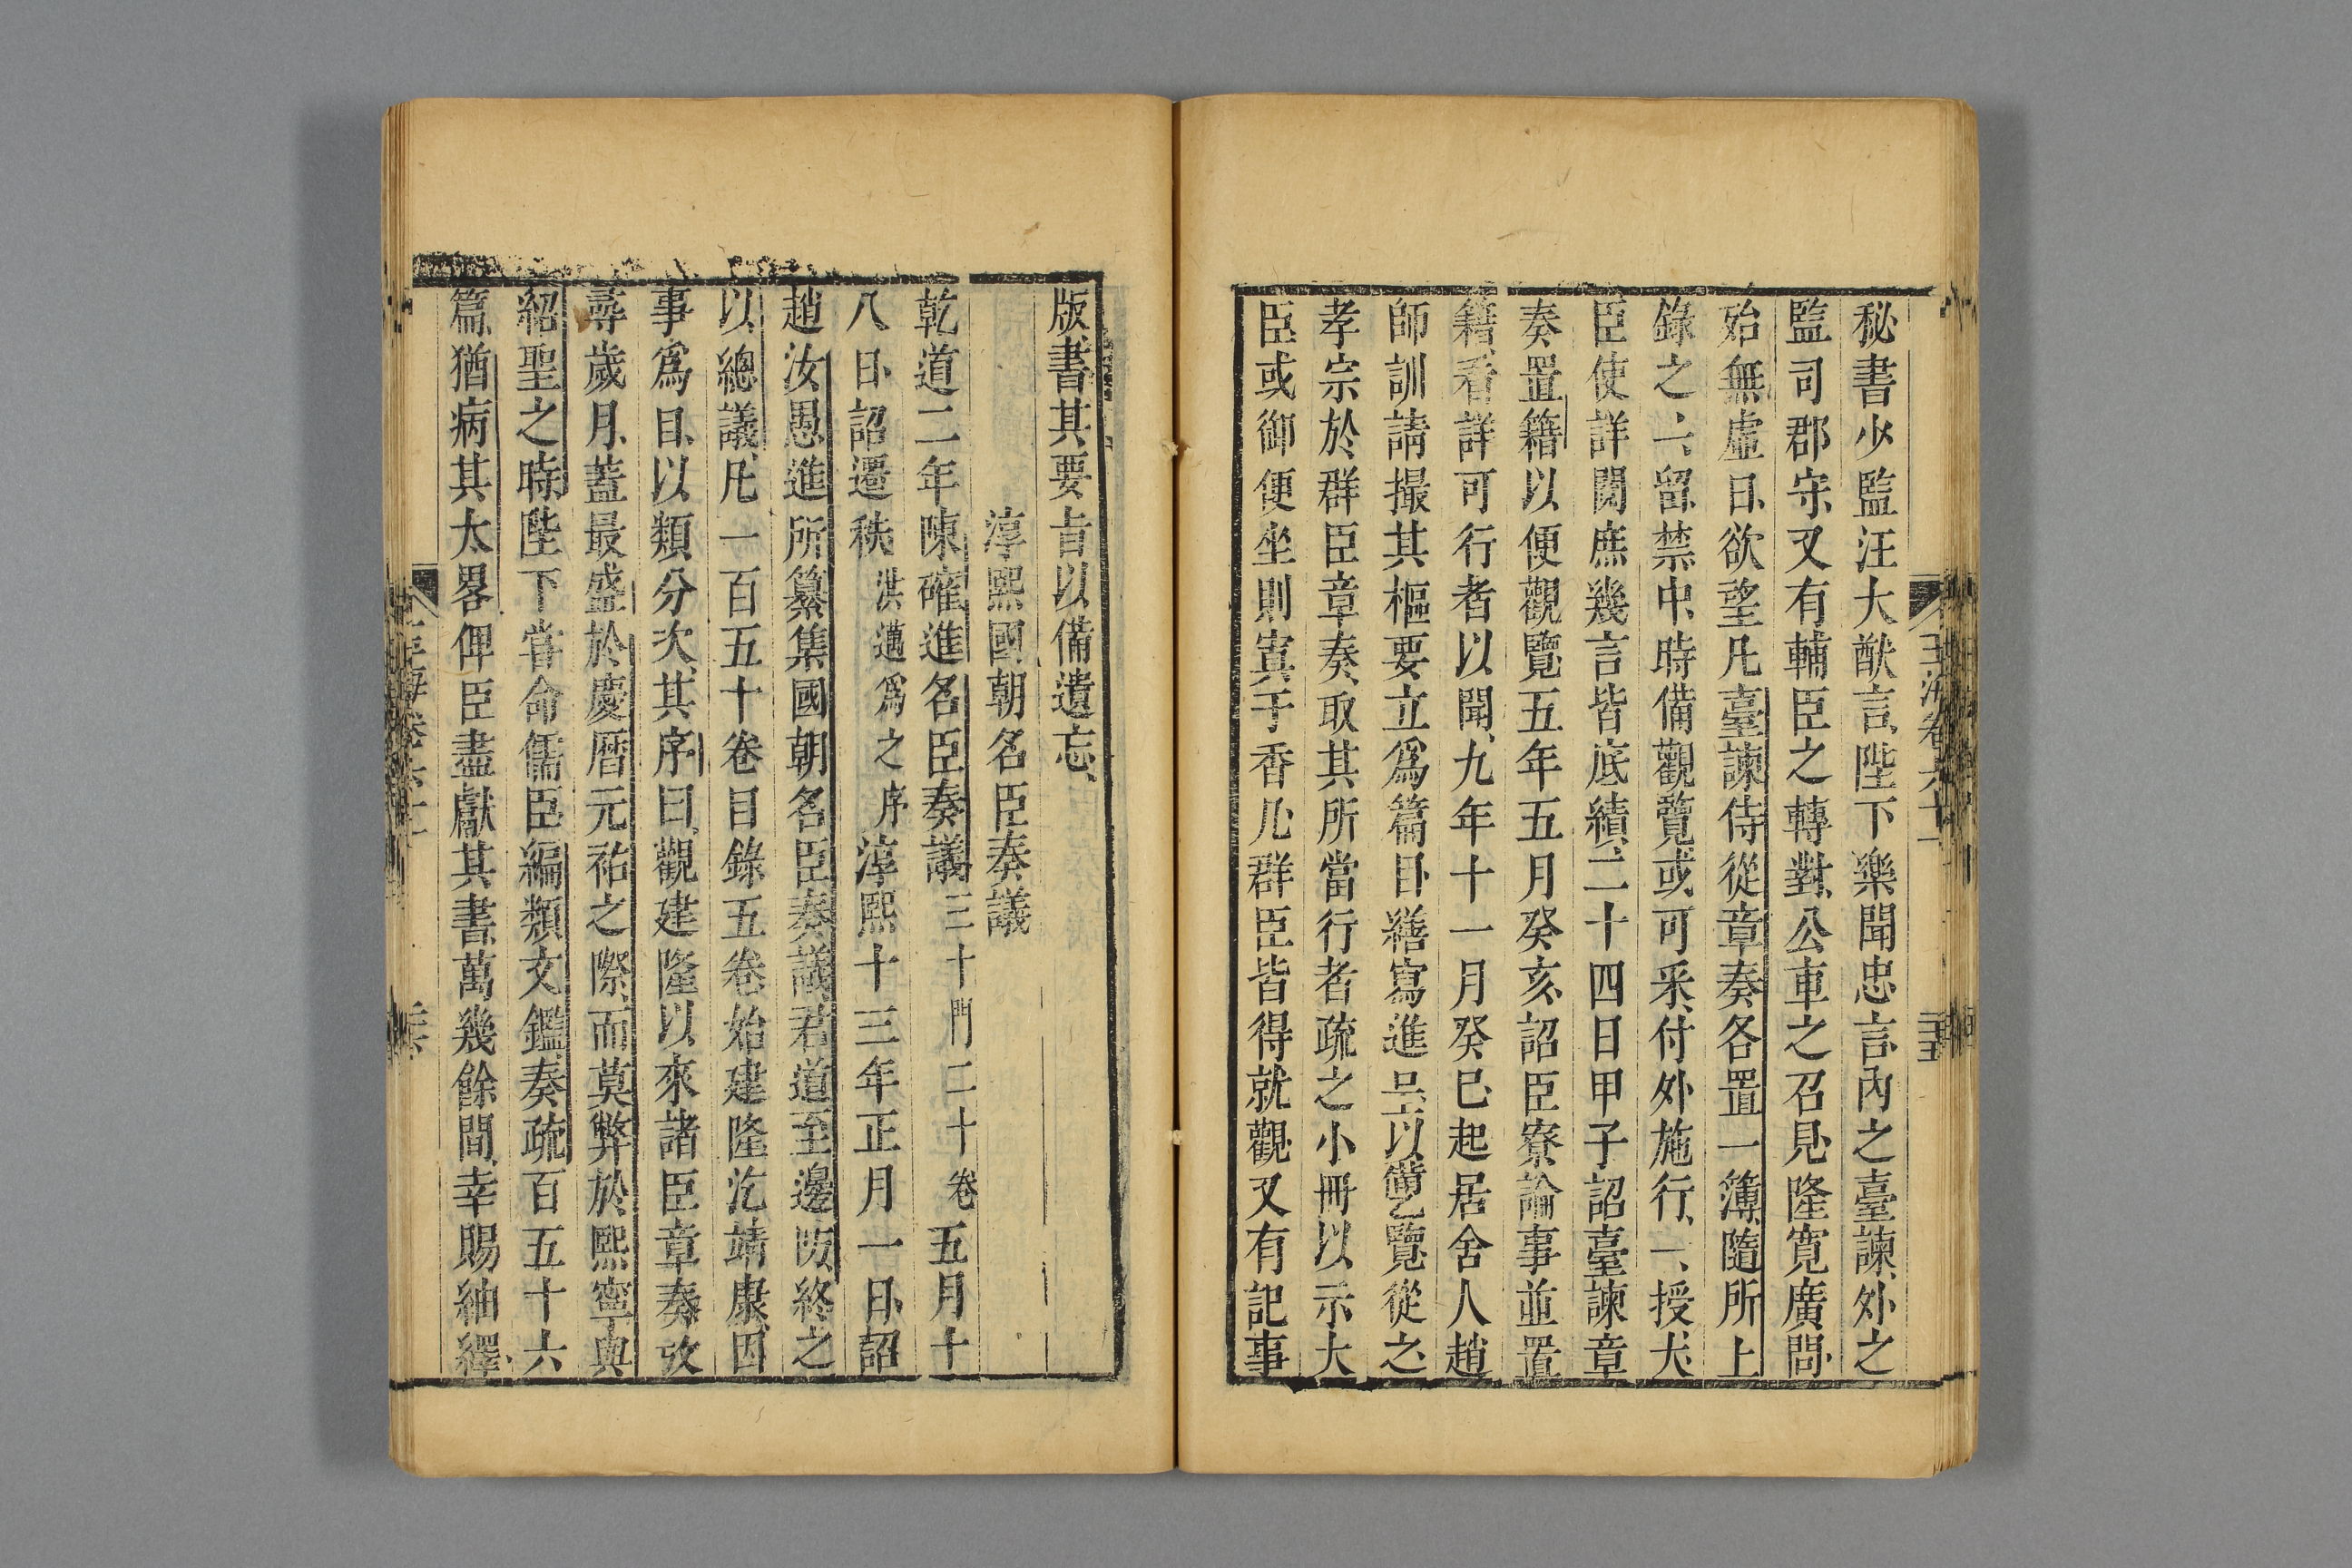 秘書少監汪大猷言陛下樂聞忠言內之臺諫外之
監司郡守又有輔臣之轉對公車之召見隆寬廣問
殆無虛日欲望凡臺諫侍從章奏各置一簿隨所上
錄之一留禁中時備觀覽或可采付外施行一授大
臣使詳閱庶幾言皆底績二十四日甲子詔臺諫章
奏置籍以便觀覽五年五月癸亥詔臣寮論事並置
籍看詳可行者以聞九年十一月癸巳起居舍人趙
師訓請撮其樞要立為篇目繕寫進呈以備乙覽從之
孝宗於群臣章奏取其所當行者疏之小冊以示大
臣或御便坐則寘于香几群臣皆得就觀又有記事
版書其要旨以備遺忘
淳熙國朝名臣奏議
乾道二年陳確進名臣奏議三十門二十卷五月十
八日詔遷秩洪邁為之序淳熙十三年正月一日詔
趙汝愚進所纂集國朝名臣奏議君道至邊防終之
以總議凡一百五十卷目錄五卷始建隆迄靖康因
事為目以類分次其序曰觀建隆以來諸臣章奏攷
尋歲月蓋最盛於慶曆元祐之際而莫弊於熙寧與
紹聖之時陛下嘗命儒臣編類文鑑奏疏百五十六
篇猶病其太畧俾臣盡獻其書萬幾餘間幸賜紬繹